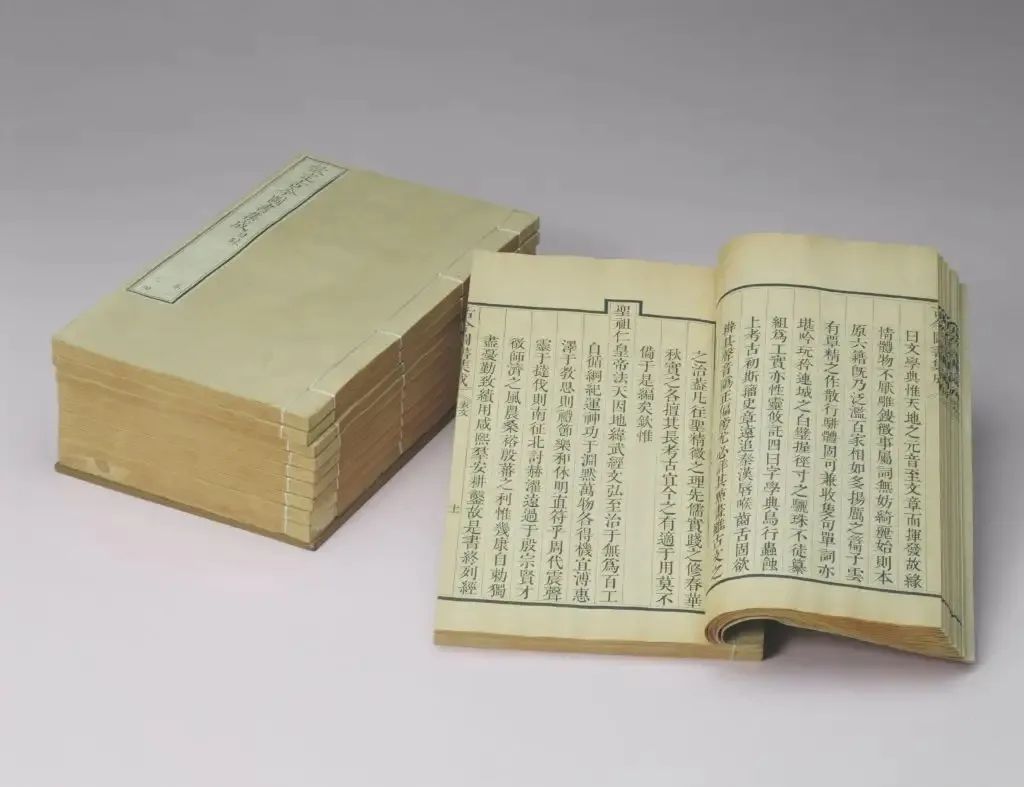 欽定古今圖書集成
曰文學典惟天地之元音至文章而揮發故緣
情體物不厭雕鎪徵事屬詞無妨綺麗始則本
原六籍旣乃泛濫百家相如多揚厲之篇子雲
有覃精之作散行駢體固可兼收隻句單詞亦
堪吟玩矜連城之白璧握徑寸之驪珠不徒纂
組爲工實亦性靈攸託四曰字學典鳥行蟲蝕
上考古初斯籀史章遠追秦漢唇喉齒舌固欲
辨其聲音譌正偏旁尤必其雖古文之
之治蓋凡往聖精微之理先儒實踐之修春華
秋實之各擅其長考古宜今之有適于用莫不
備于是編矣欽惟
聖祖仁皇帝法天因地緯武經文弘至治于無爲百工
自循綱紀運神功于淵默萬物各得機宜溥惠
澤于敎思則禮節樂和休明直符乎周代震聲
靈于撻伐則南征北討赫濯遠過于殷宗賢才
敬師濟之風農桑裕殷蕃之利惟幾康自勅獨
盡憂勤致績用咸熙羣安耕鑿故是書終列經
古今圖書集成